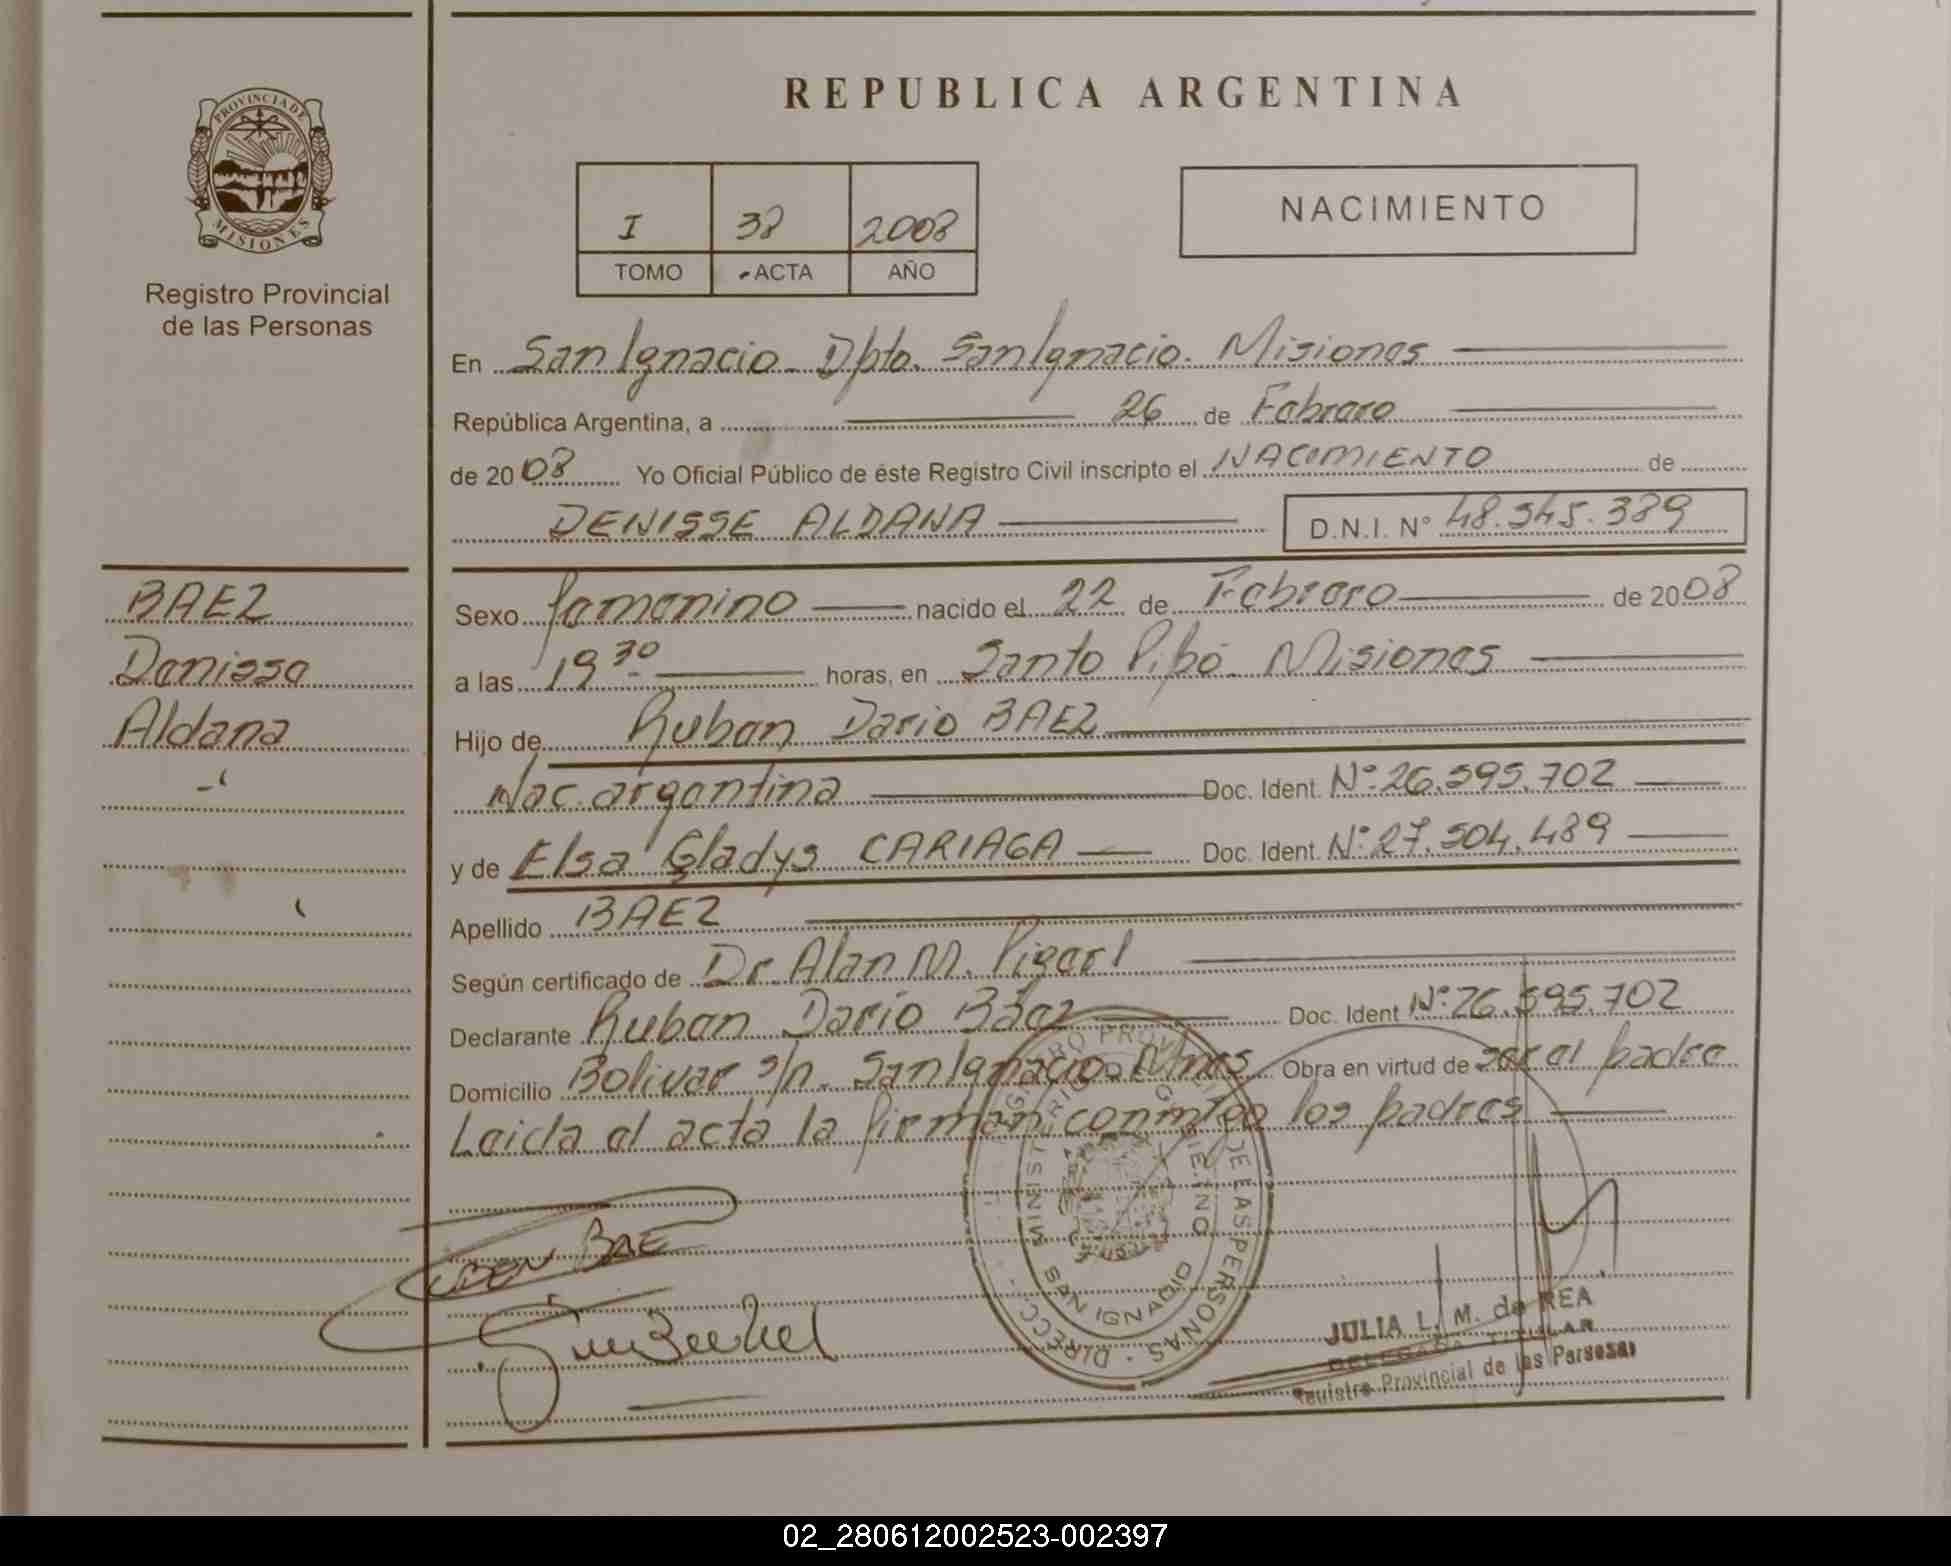 REPUBLICA ARGENTINA
PROVINCIA DE
MISIONES
Registro Provincial
de las Personas
I 38 2008
TOMO ACTA AÑO
NACIMIENTO
En San Ignacio Dpto. San Ignacio. Misiones
República Argentina, a 26 de Febrero
de 2008 Yo Oficial Público de éste Registro Civil inscripto el NACIMIENTO de
DENISSE ALDANA D.N.I. N° 48.545.389
BAEZ
Denisse
Aldana
Sexo femenino nacido el 22 de Febrero de 2008
a las 19 30 horas, en Santo Pipó. Misiones
Hijo de Ruben Dario BAEZ
Nac. argentina Doc. Ident. N°. 26.595.702
y de Elsa Gladys CARIAGA Doc. Ident. N°. 27.504.489
Apellido BAEZ
Según certificado de Dr. Alan M.
Declarante Ruben Darío Báez Doc. Ident N°. 26.595.702
Domicilio Bolivar s/n. San Ignacio. Mnes Obra en virtud de ser el padre
Leida el acta la firman conmigo los padres
SAN IGNACIO
JULIA L. M. de REA
DELEGADA TITULAR
Registro Provincial de las Personas
02_280612002523-002397